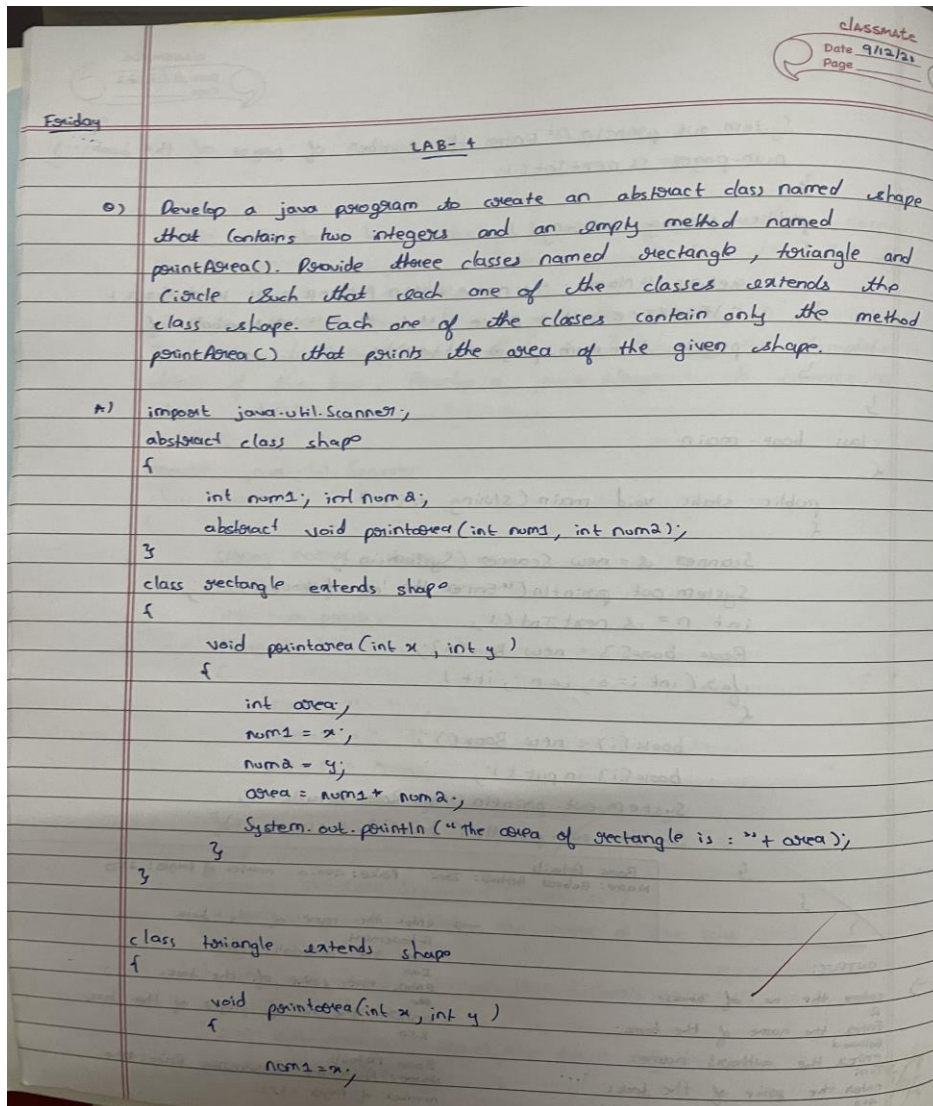 classmate
Date 9/12/21
Page
Friday
LAB- 4
Q) Develop a java program to create an abstract class named shape
that contains two integers and an empty method named
printArea(). Provide three classes named rectangle, triangle and
Circle such that each one of the classes extends the
class shape. Each one of the classes contain only the method
printArea() that prints the area of the given shape.
A) import java.util.Scanner;
abstract class shape
{
int num1; int num2;
abstract void printarea(int num1, int num2);
}
class rectangle extends shape
{
void printarea(int x, int y)
{
int area;
num1 = x;
num2 = y;
area = num1 * num2;
System.out.println("The area of rectangle is : "+ area);
}
}
class triangle extends shape
{
void printarea(int x, int y)
{
num1=x;